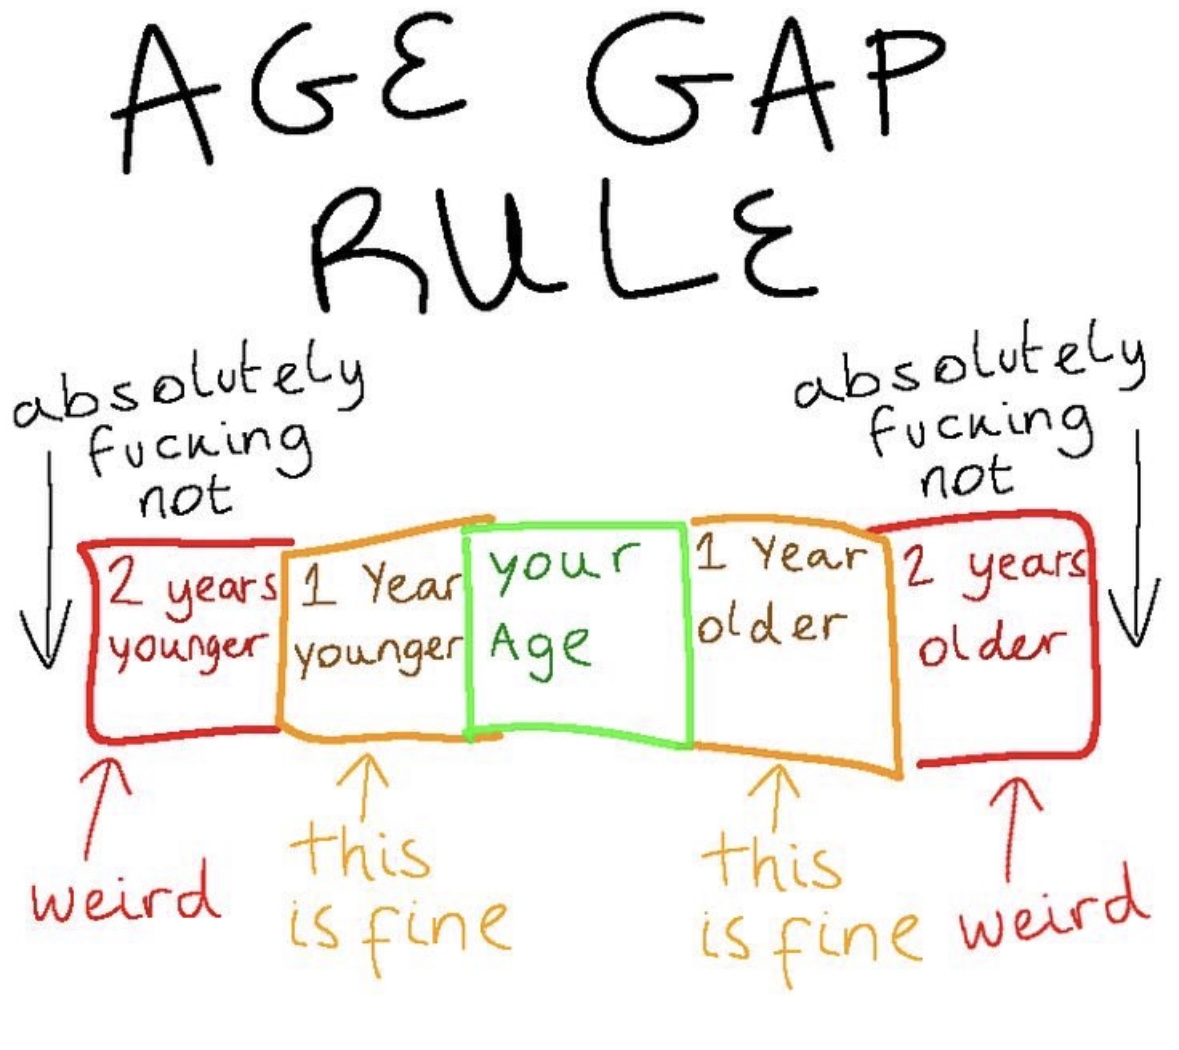 AGE GAP
RULE
absolutely
fucking
not
absolutely
fucking
not
2 years
younger
1 Year
younger
your
Age
1 Year
older
2 years
older
weird
this
is fine
this
is fine
weird